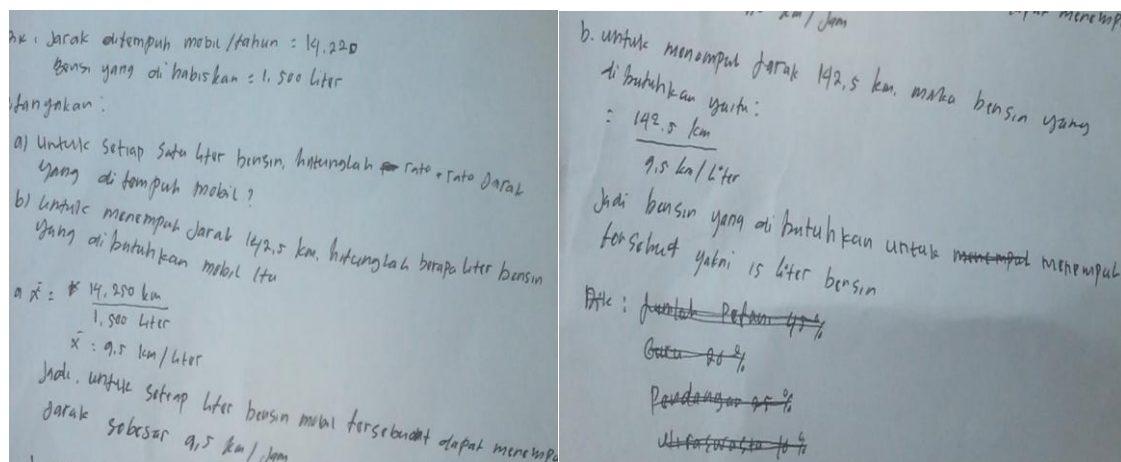 Dik : Jarak ditempuh mobil/tahun = 14.220
Bensi yang di habiskan = 1.500 liter
ditanyakan :
a) Untuk setiap satu liter bensin, hitunglah rata-rata jarak
yang di tempuh mobil?
b) Untuk menempuh jarak 142,5 km. hitunglah berapa liter bensin
yang dibutuhkan mobil itu
a x̄ = 14.250 km
1.500 liter
x̄ : 9.5 km/liter
Jadi, untuk setiap liter bensin mobil tersebut dapat menemp
jarak sebesar 9,5 km/jam
km/jam
dapat menemp
b. untuk menempuh jarak 142,5 km, maka bensin yang
dibutuhkan yaitu:
= 142,5 km
9,5 km/liter
Jadi bensin yang di butuhkan untuk menempul menempuh
tersebut yakni 15 liter bensin
Dik : Jumlah Petani 45%
Guru 20%
Pendangar 25%
Wiraswasta 10%